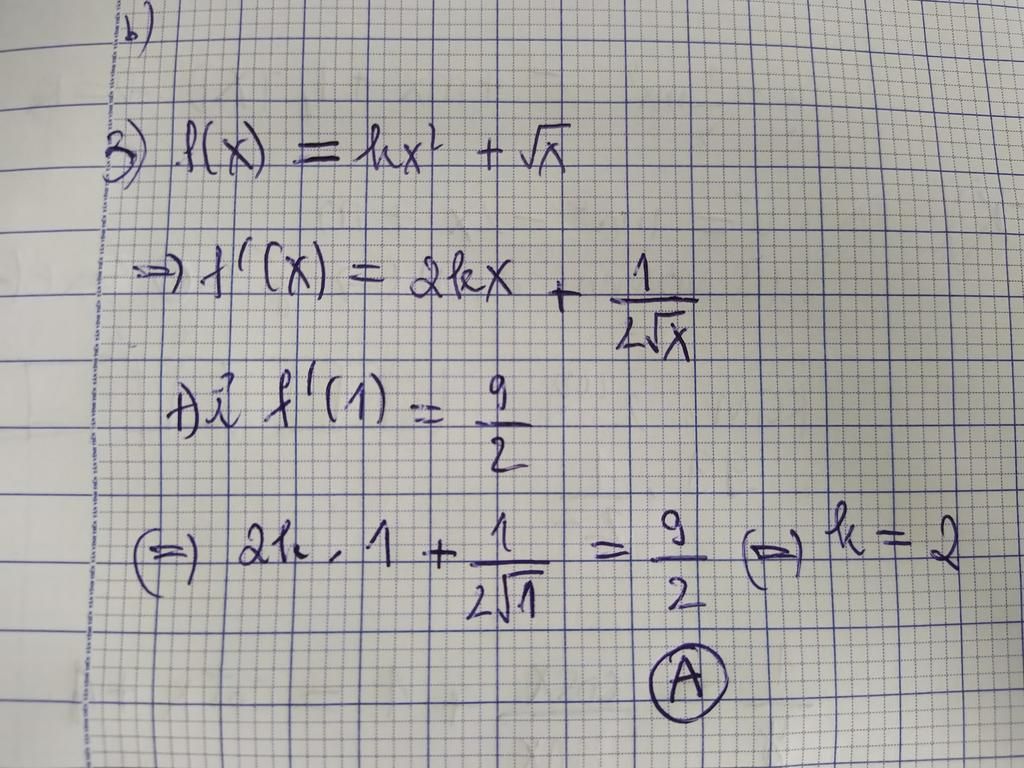 b)
3) f(x) = kx² + √x
=> f'(x) = 2kx + 1/(2√x)
f'(1) = 9/2
(=) 2k . 1 + 1/(2√1) = 9/2 (=) k = 2
A